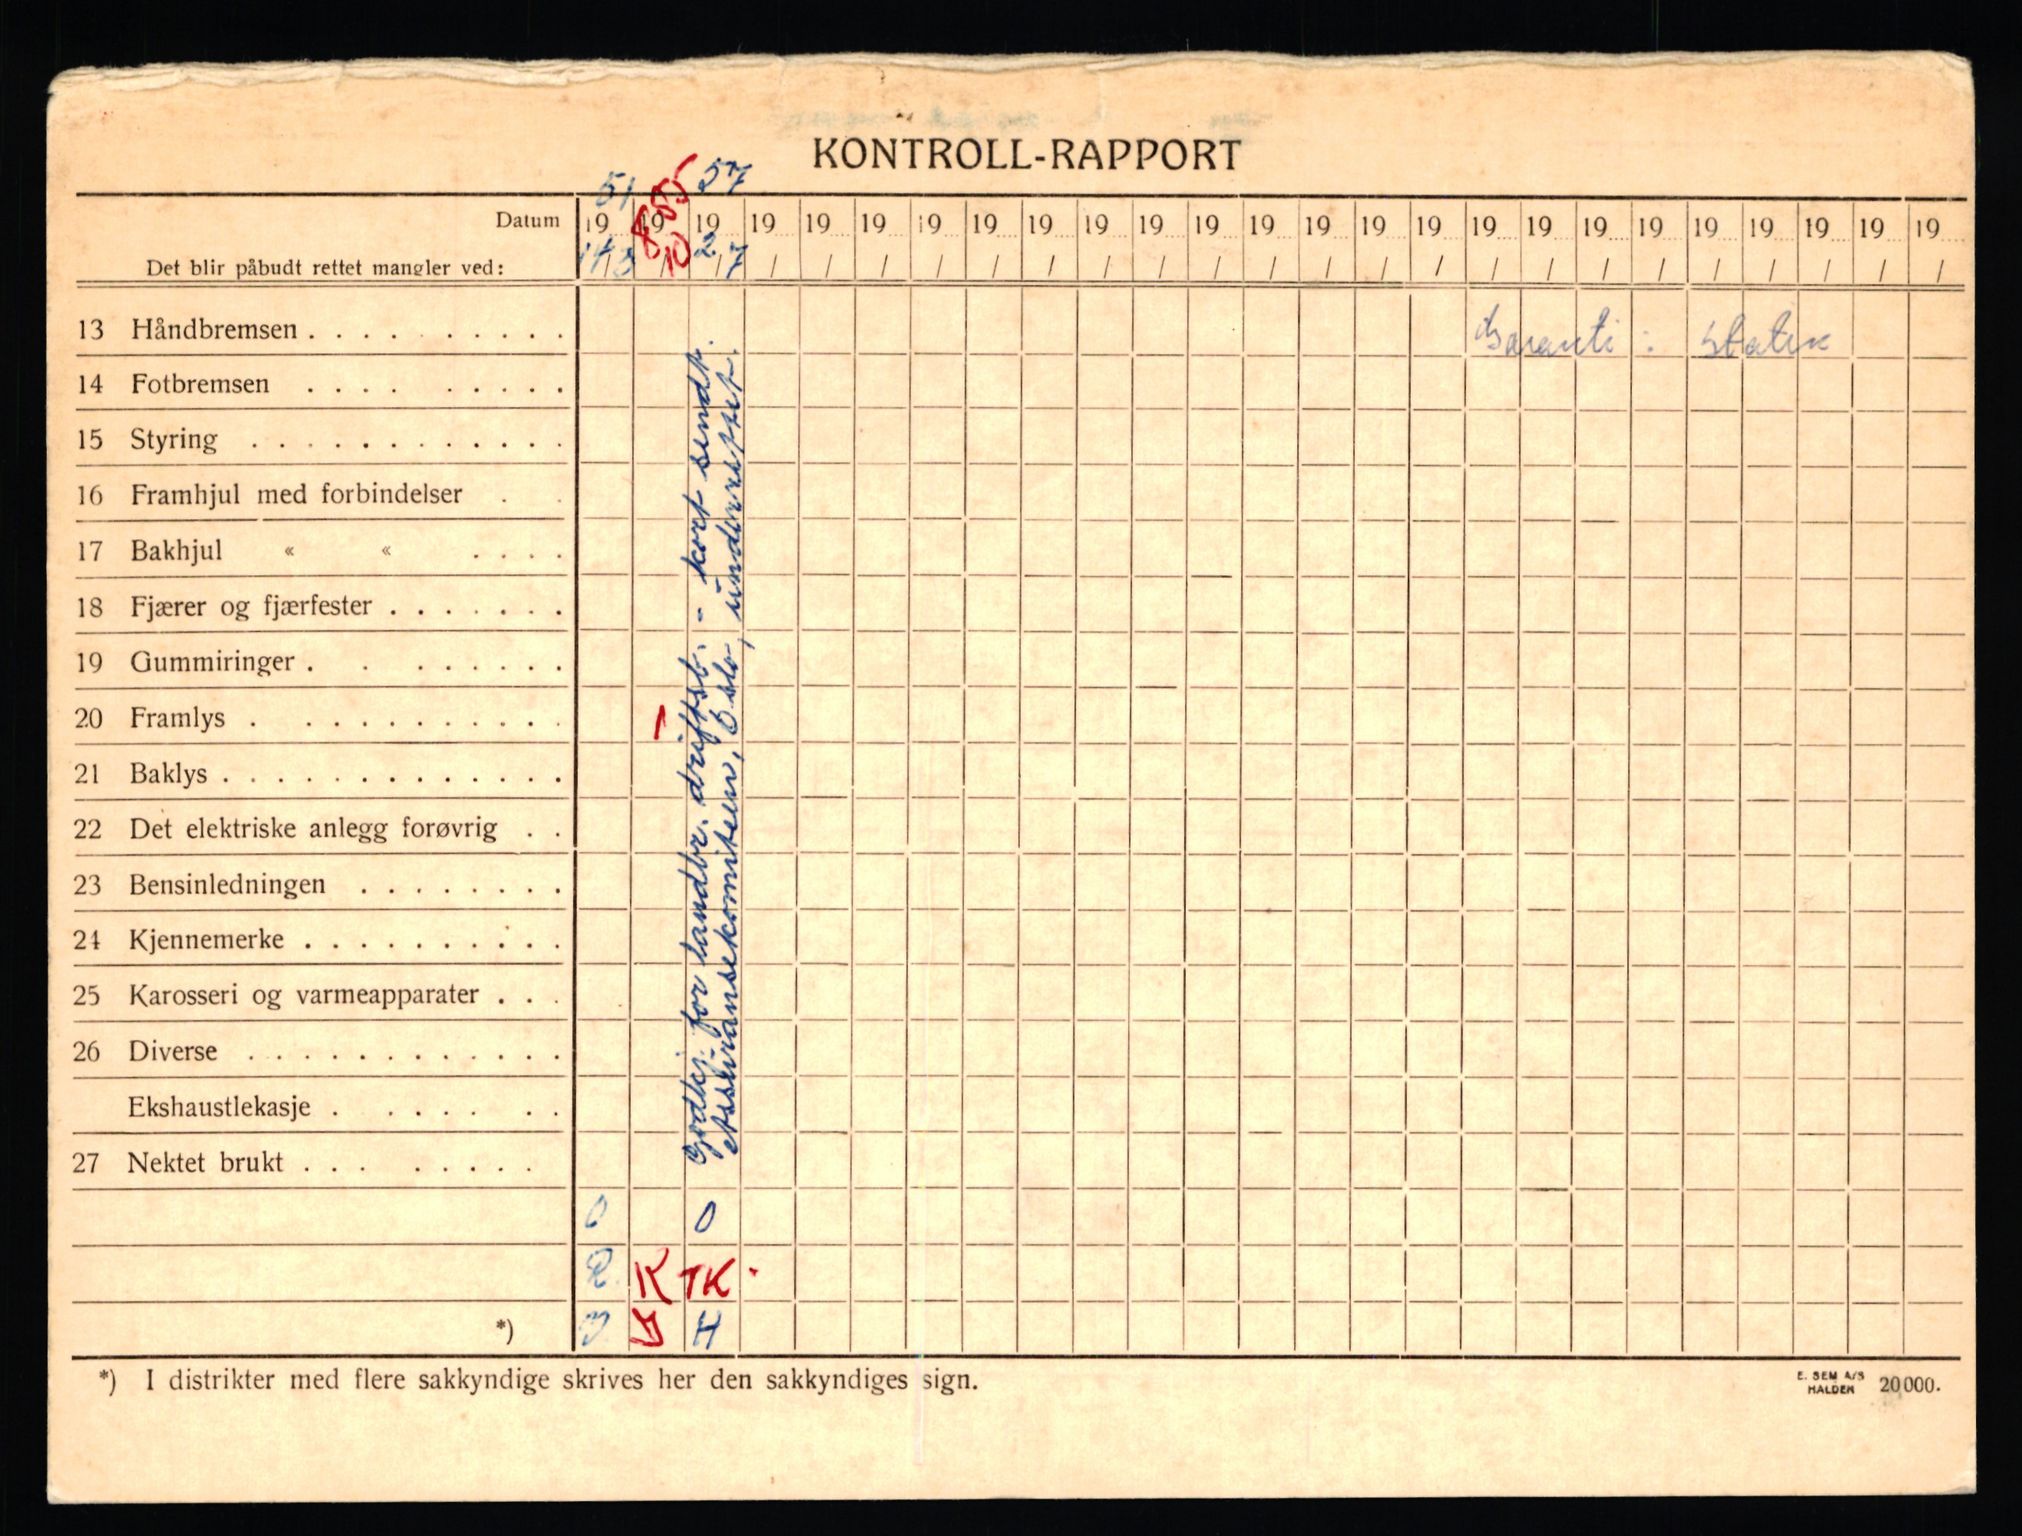 KONTROLL-RAPPORT
51 855 57
Datum 19 19 19 19 19 19 19 19 19 19 19 19 19 19 19 19 19 19 19 19 19 19 19 19 19
Det blir påbudt rettet mangler ved: 14/3 /10 2/7 / / / / / / / / / / / / / / / / / / / / / /
13 Håndbremsen . . . . . . . . . . Garanti : Statens
14 Fotbremsen . . . . . . . . .
15 Styring . . . . . . . . . . . .
16 Framhjul med forbindelser . .
17 Bakhjul « « . . . .
18 Fjærer og fjærfester . . . . . . .
19 Gummiringer . . . . . . . .
20 Framlys . . . . . . . . . . . -
21 Baklys . . . . . . . . . . . . .
22 Det elektriske anlegg forøvrig . .
23 Bensinledningen . . . . . . . .
24 Kjennemerke . . . . . . . . . .
25 Karosseri og varmeapparater . . .
26 Diverse . . . . . . . . . . . .
Ekshaustlekasje . . . . . . .
27 Nektet brukt . . . . . . . .
Godkj. for landbr. driftsb. - kort sendt.
Assuransekomiteen, Oslo, underrettet.
0 0
R K TK.
*) H
*) I distrikter med flere sakkyndige skrives her den sakkyndiges sign.
E. SEM A/S
HALDEN 20000.